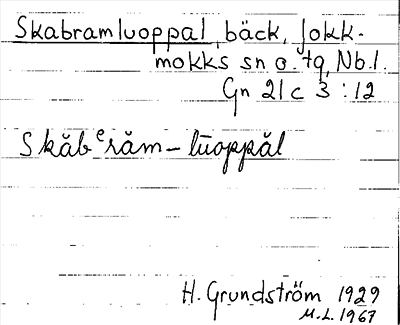 Skabramluoppal, bäck, Jokk-
mokks sn o. tg, Nb.l.
Gn 21c 3 : 12
Skăbᵉrăm – lūoppăl
H. Grundström 1929
M.L. 1967